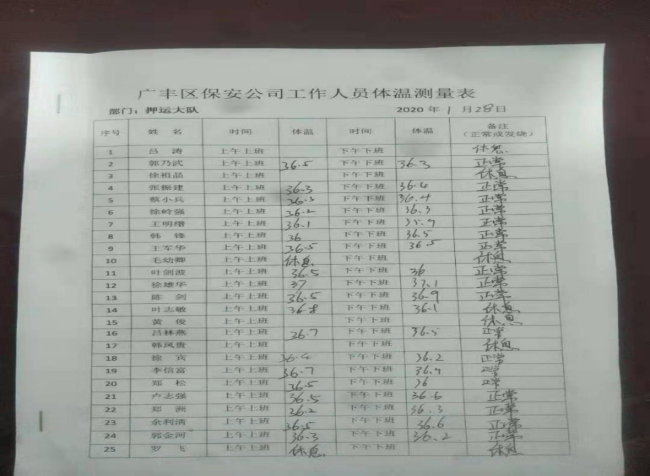 广丰区保安公司工作人员体温测量表
部门：押运大队 2020 年 1 月 28 日
序号 姓 名 时间 体温 时间 体温 备注（正常或发烧）
1 吕 涛 上午上班 下午下班 休息
2 郭乃武 上午上班 36.5 下午下班 36.3 正常
3 徐相品 上午上班 下午下班 休息
4 张振建 上午上班 36.3 下午下班 36.4 正常
5 蔡小兵 上午上班 36.3 下午下班 36.4 正常
6 徐岭强 上午上班 36.2 下午下班 正常
7 王明榗 上午上班 36.1 下午下班 正常
8 韩 锋 上午上班 36 下午下班 36.5 正常
9 王军华 上午上班 36.5 下午下班 36.5 正常
10 毛幼卿 上午上班 休息 下午下班 休息
11 叶剑波 上午上班 36.5 下午下班 36 正常
12 徐雄华 上午上班 37 下午下班 37.1 正常
13 陈 剑 上午上班 36.5 下午下班 36.9 正常
14 叶志敏 上午上班 下午下班 36.1 休息
15 黄 俊 上午上班 下午下班 休息
16 吕林燕 上午上班 36.7 下午下班 36.5 正常
17 韩凤贵 上午上班 下午下班 休息
18 徐 宾 上午上班 36.4 下午下班 36.2 正常
19 李信富 上午上班 36.7 下午下班 36.4 正常
20 郑 松 上午上班 36.5 下午下班 36 正常
21 卢志强 上午上班 36.5 下午下班 36.6 正常
22 郑 洲 上午上班 36.2 下午下班 36.3 正常
23 余利清 上午上班 36.5 下午下班 36.6 正常
24 郭金河 上午上班 36.3 下午下班 36.2 正常
25 罗 飞 上午上班 休息 下午下班 休息